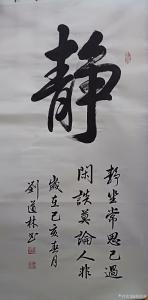 静
静坐常思己過
閑談莫論人非
歲在己亥春月
劉道林书